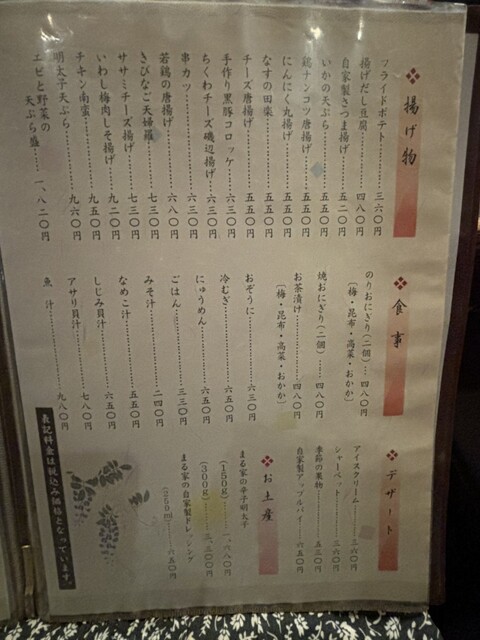 揚げ物
フライドポテト………三六〇円
揚げだし豆腐………四八〇円
自家製さつま揚げ………五二〇円
いかの天ぷら………五五〇円
鶏ナンコツ唐揚げ………五五〇円
にんにく丸揚げ………五五〇円
なすの田楽………五五〇円
チーズ唐揚げ………五五〇円
手作り黒豚コロッケ………六三〇円
ちくわチーズ磯辺揚げ………六三〇円
串カツ………六三〇円
若鶏の唐揚げ………六八〇円
きびなご天婦羅………七三〇円
ササミチーズ揚げ………七三〇円
いわし梅肉しそ揚げ………九二〇円
チキン南蛮………九五〇円
明太子天ぷら………九六〇円
エビと野菜の
天ぷら盛………一、八二〇円
食事
のりおにぎり(二個)…四八〇円
〔梅・昆布・高菜・おかか〕
焼おにぎり(二個)…四八〇円
お茶漬け………四八〇円
〔梅・昆布・高菜・おかか〕
おぞうに………六三〇円
冷むぎ………六五〇円
にゅうめん………六五〇円
ごはん………三三〇円
みそ汁………二四〇円
なめこ汁………五五〇円
しじみ貝汁………六五〇円
アサリ貝汁………七八〇円
魚汁………九八〇円
デザート
アイスクリーム………三六〇円
シャーベット………三六〇円
季節の果物………五三〇円
自家製アップルパイ………六五〇円
お土産
まる家の辛子明太子
(150g)………一、六八〇円
(300g)………三、三〇〇円
まる家の自家製ドレッシング
(250ml)………六五〇円
表記料金は税込み価格となっています。